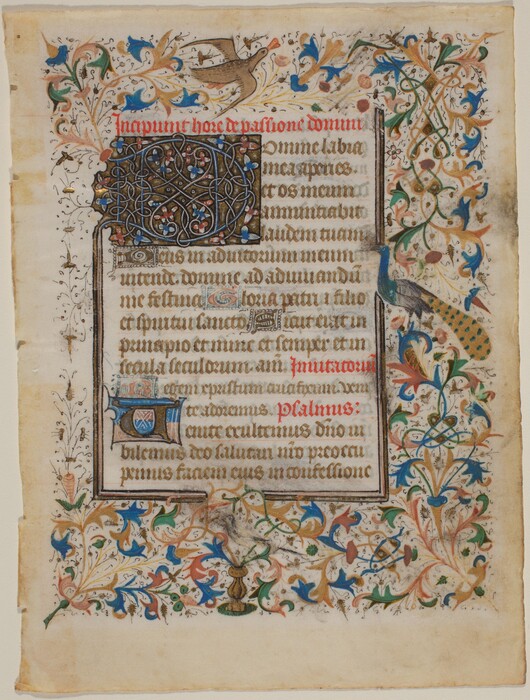 Incipiunt hore de passione domini
Domine labia
mea aperies
et os meum
annuntiabit
laudem tuam
Deus in adiutorium meum
intende. domine ad adiuuandū
me festina Gloria patri ⁊ filio
et spiritui sancto Sicut erat in
principio et nunc et semper et in
secula seculorum. am̄. Inuitatoriū
Regem xp̄m crucifixum. veni
te adoremus. Psalmus:
Venite exultemus dn̄o iu
bilemus deo salutari nr̄o preoccu
pemus faciem eius in confessione